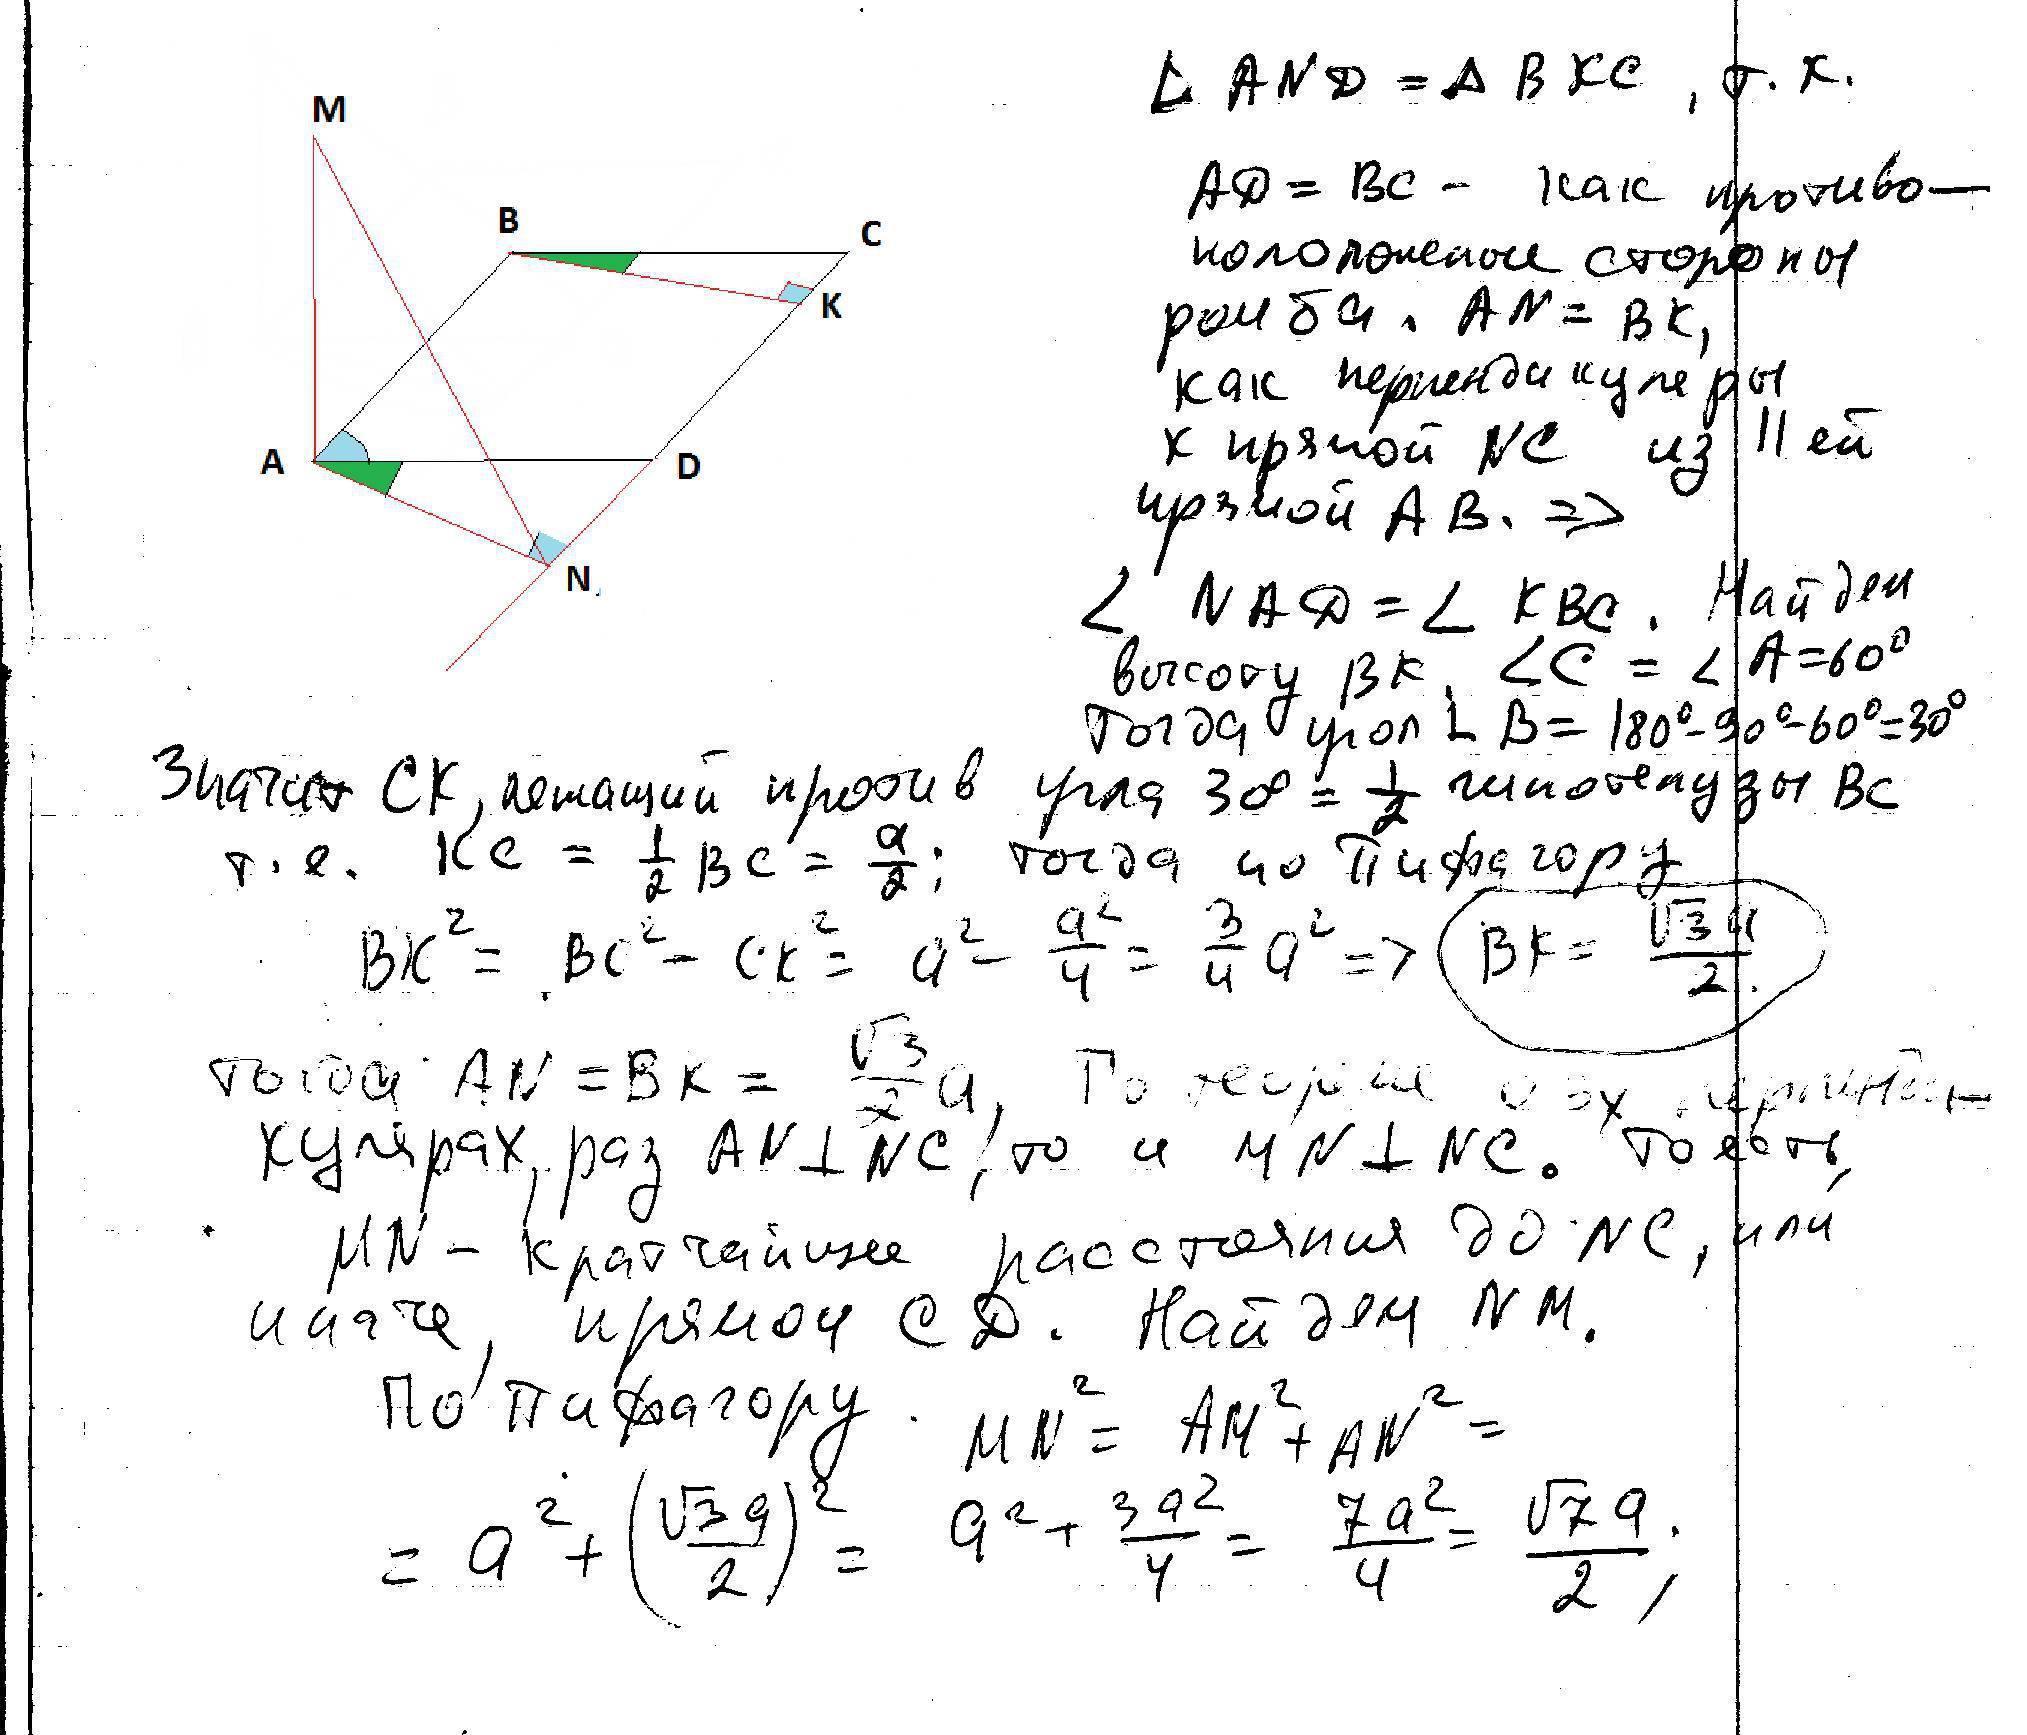 M
B
C
K
A
D
N
Δ AND = Δ BKC, т.к.
AD = BC - как противо-
положеные стороны
ромба. AN = BK,
как перпендикуляры
к прямой NC из || ей
прямой AB. =>
∠ NAD = ∠ KBC. Найдем
высоту BK. ∠C = ∠A = 60°
Тогда угол ∠B = 180°-90°-60°=30°
Значит CK, лежащий против угла 30° = 1/2 гипотенузы BC
т.е. KC = 1/2 BC = a/2; тогда по Пифагору
BK² = BC² - CK² = a² - a²/4 = 3/4 a² => BK = √3a/2.
тогда AN = BK = √3/2 a, По теореме о 3х перпенди-
кулярах, раз AN⊥NC, то и MN⊥NC. То есть,
MN - кратчайшее расстояния до NC, или
иначе, прямой CD. Найдем NM.
По Пифагору MN² = AM² + AN² =
= a² + (√3a/2)² = a² + 3a²/4 = 7a²/4 = √7a/2;